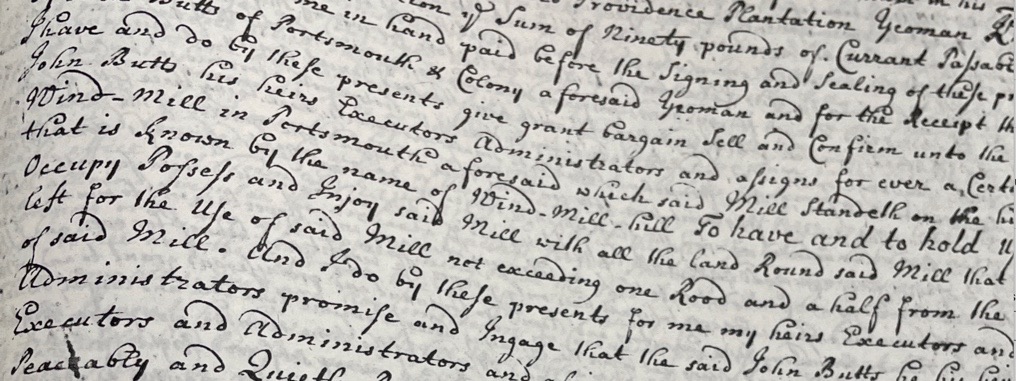 in his
Providence Plantation Yeoman
ye Sum of Ninety pounds of Currant Passabl
me in hand paid before the Signing and Sealing of these pr
Butts of Portsmouth & Colony aforesaid Yeoman and for the Receipt th
I have and do by these presents give grant bargain Sell and Confirm unto the
John Butts his heirs Executors Administrators and assigns for ever a Certi
Wind-Mill in Portsmouth aforesaid which said Mill Standeth on the hi
that is known by the name of Wind-Mill-hill To have and to hold u
Occupy Possess and Injoy said Mill with all the land Round said Mill that
left for the Use of said Mill not exceeding one Rood and a half from the
of said Mill. And I do by these presents for me my heirs Executors and
Administrators promise and Ingage that the said John Butts he his hei
Executors and Administrators and
Peaceably and